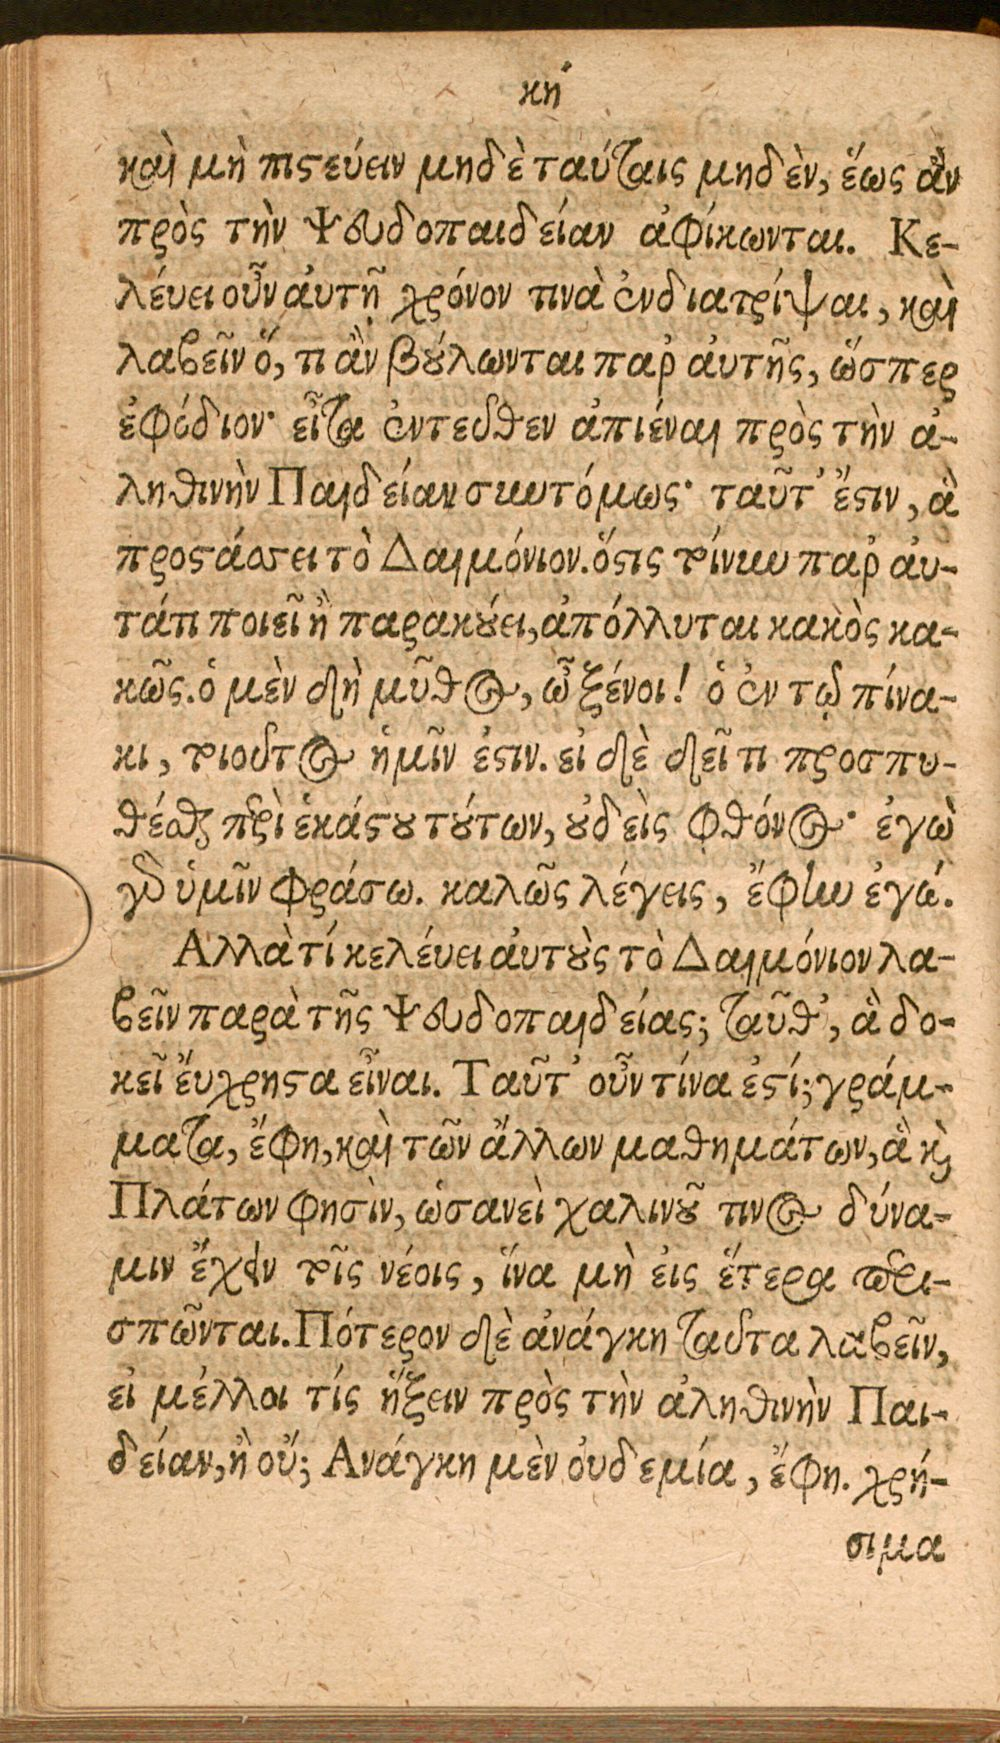 κη΄
καὶ μὴ πιστεύειν μηδὲ ταύταις μηδὲν, ἕως ἂν
πρὸς τὴν Ψευδοπαιδείαν ἀφίκωνται. Κε-
λέυει οὖν ἀυτῇ χρόνον τινὰ ἐνδιατρίψαι, καὶ
λαβεῖν ὅ, τι ἂν βούλωνται παρ᾽ ἀυτῆς, ὥσπερ
ἐφόδιον· εἶτα ἐντεῦθεν ἀπιέναι πρὸς τὴν ἀ-
ληθινὴν Παιδείαν συντόμως· ταῦτ᾽ ἔστιν, ἃ
προστάσσει τὸ Δαιμόνιον. ὅστις τοίνυν παρ᾽ ἀυ-
τά τι ποιεῖ ἢ παρακούει, ἀπόλλυται κακὸς κα-
κῶς. ὁ μὲν δὴ μῦθος, ὦ ξένοι! ὁ ἐν τῷ πίνα-
κι, τοιοῦτος ἡμῖν ἐστιν. εἰ δὲ δεῖ τι προσπυ-
θέσθαι περὶ ἑκάστου τούτων, οὐδεὶς φθόνος· ἐγὼ
γὰρ ὑμῖν φράσω. καλῶς λέγεις, ἔφην ἐγώ.
Αλλὰ τί κελέυει ἀυτοὺς τὸ Δαιμόνιον λα-
βεῖν παρὰ τῆς Ψευδοπαιδείας; ταῦθ᾽, ἃ δο-
κεῖ ἔυχρηστα εἶναι. Ταῦτ᾽ οὖν τίνα ἐστί; γράμ-
ματα, ἔφη, καὶ τῶν ἄλλων μαθημάτων, ἃ καὶ
Πλάτων φησὶν, ὡσανεὶ χαλινοῦ τινος δύνα-
μιν ἔχειν τοῖς νέοις, ἵνα μὴ ἐις ἕτερα περι-
σπῶνται. Πότερον δὲ ἀνάγκη ταῦτα λαβεῖν,
εἰ μέλλοι τίς ἥξειν πρὸς τὴν ἀληθινὴν Παι-
δείαν, ἢ οὔ; Ανάγκη μὲν ὀυδεμία, ἔφη. χρή-
σιμα